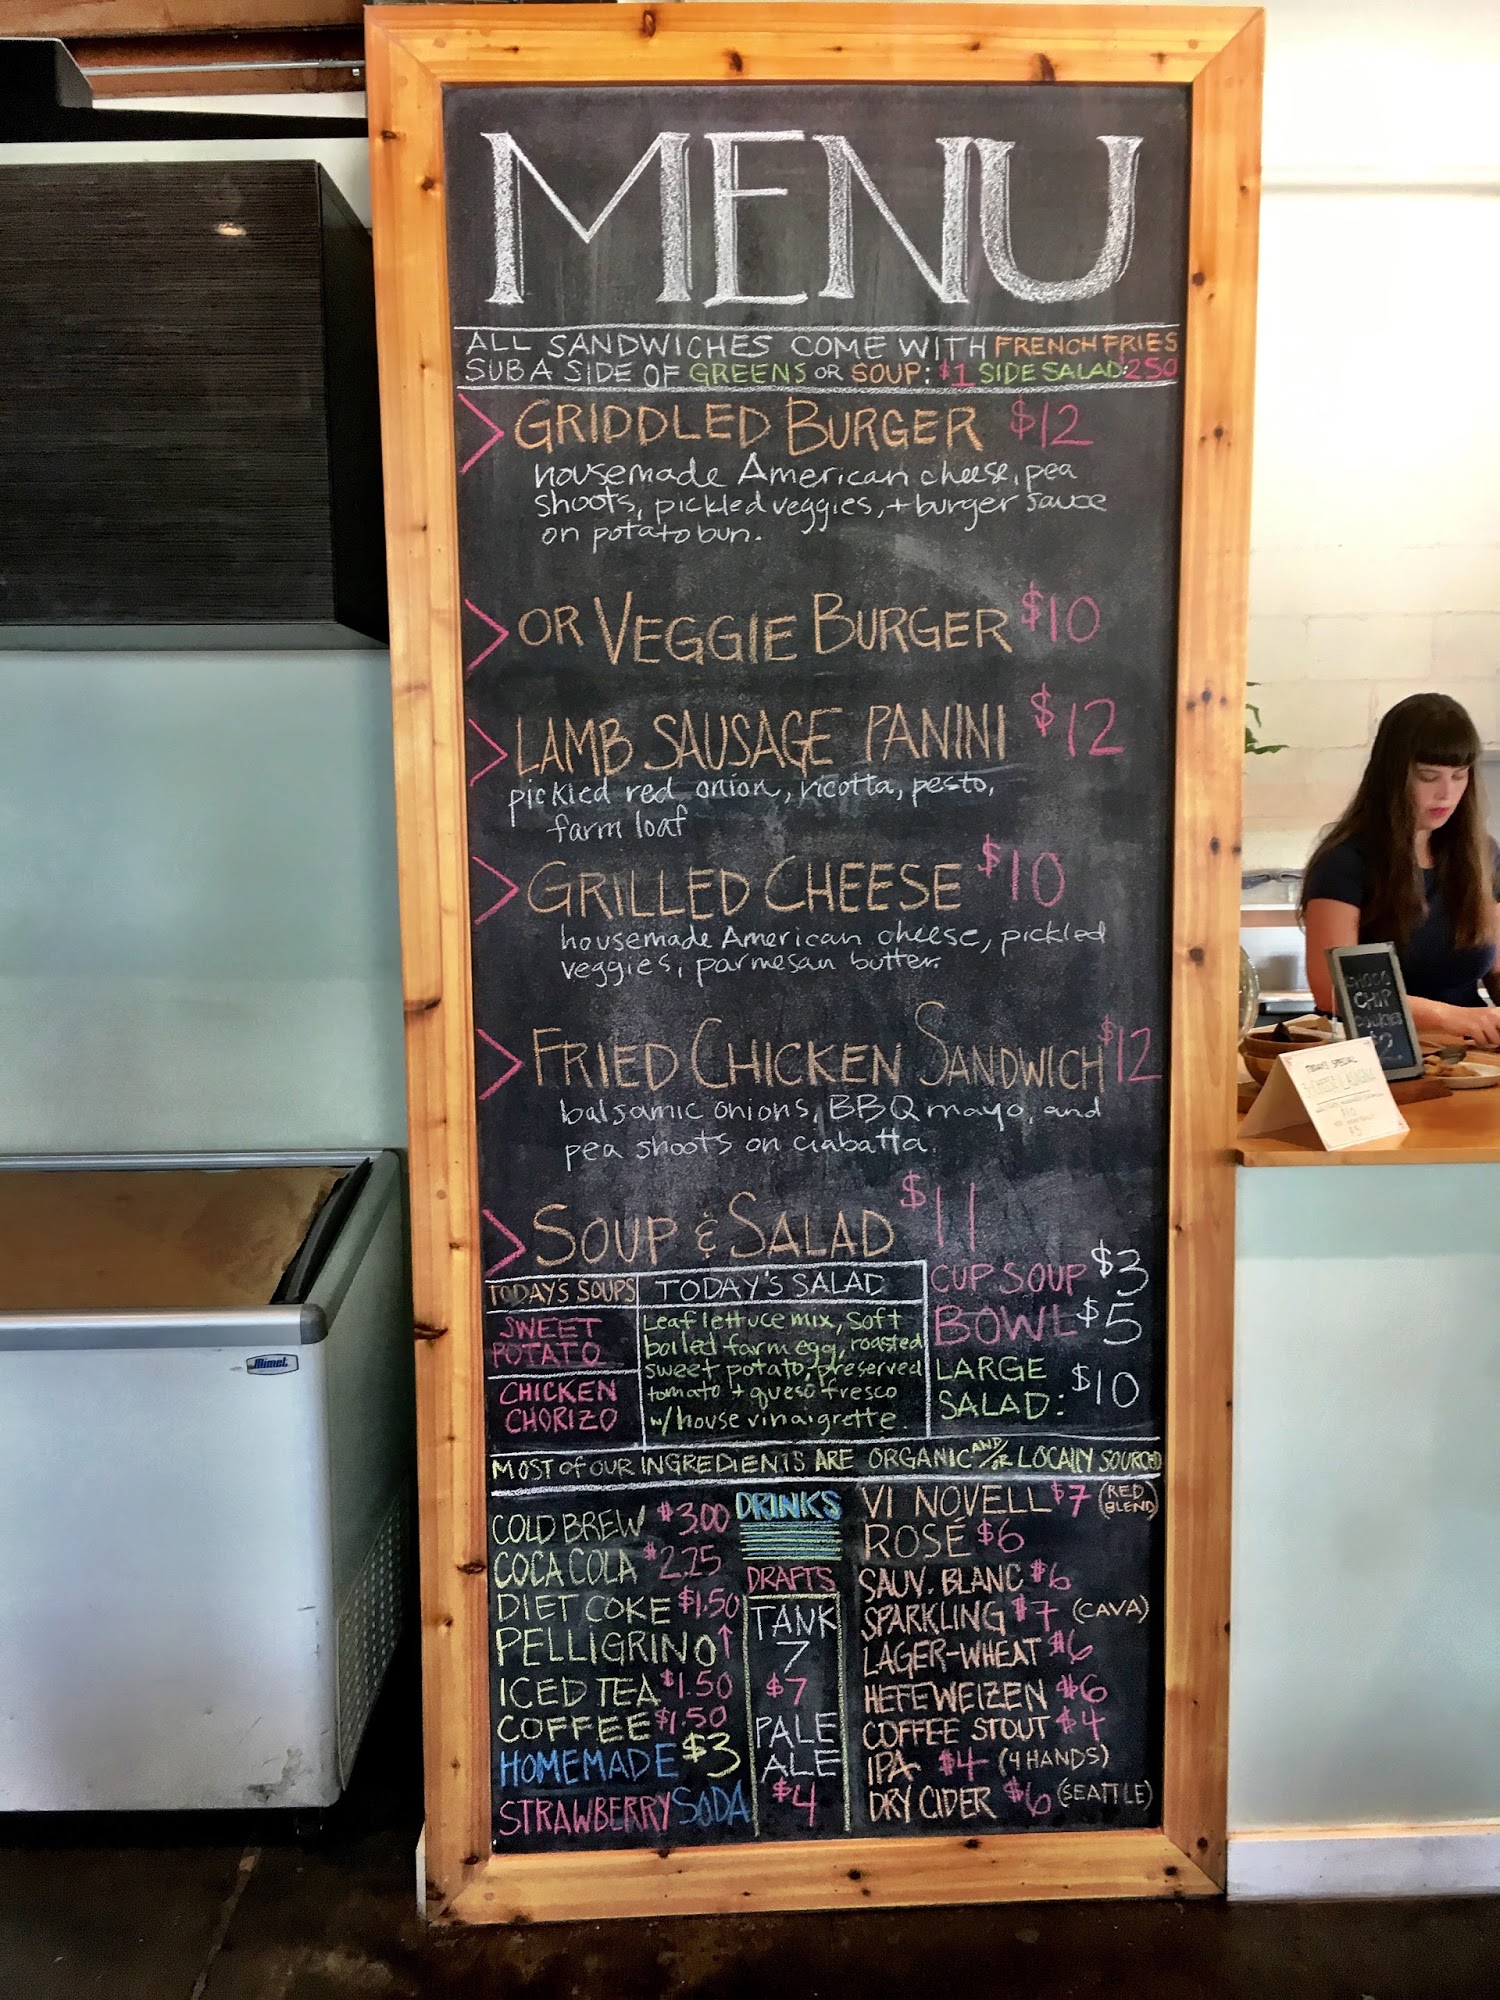 MENU
ALL SANDWICHES COME WITH FRENCH FRIES
SUB A SIDE OF GREENS OR SOUP: $1 SIDE SALAD: 250
GRIDDLED BURGER $12
housemade American cheese, pea
shoots, pickled veggies, + burger sauce
on potato bun.
OR VEGGIE BURGER $10
LAMB SAUSAGE PANINI $12
pickled red onion, ricotta, pesto,
farm loaf
GRILLED CHEESE $10
housemade American cheese, pickled
veggies, parmesan butter.
FRIED CHICKEN SANDWICH $12
balsamic onions, BBQ mayo, and
pea shoots on ciabatta.
SOUP & SALAD $11
TODAY'S SOUPS
SWEET
POTATO
CHICKEN
CHORIZO
TODAY'S SALAD
Leaf lettuce mix, soft
boiled farm egg, roasted
sweet potato, preserved
tomato + queso fresco
w/ house vinaigrette.
CUP SOUP $3
BOWL $5
LARGE
SALAD: $10
MOST OF OUR INGREDIENTS ARE ORGANIC AND/OR LOCALLY SOURCED
COLD BREW $3.00
COCA COLA $2.25
DIET COKE $1.50
PELLIGRINO ↑
ICED TEA $1.50
COFFEE $1.50
HOMEMADE $3
STRAWBERRY SODA
DRINKS
DRAFTS
TANK
7
$7
PALE
ALE
$4
VI NOVELL $7 (RED BLEND)
ROSÉ $6
SAUV. BLANC $6
SPARKLING $7 (CAVA)
LAGER-WHEAT $6
HEFEWEIZEN $6
COFFEE STOUT $4
IPA $4 (4 HANDS)
DRY CIDER $6 (SEATTLE)
Mimet
CHOC
CHIP
COOKIES
$2
TODAY'S SPECIAL